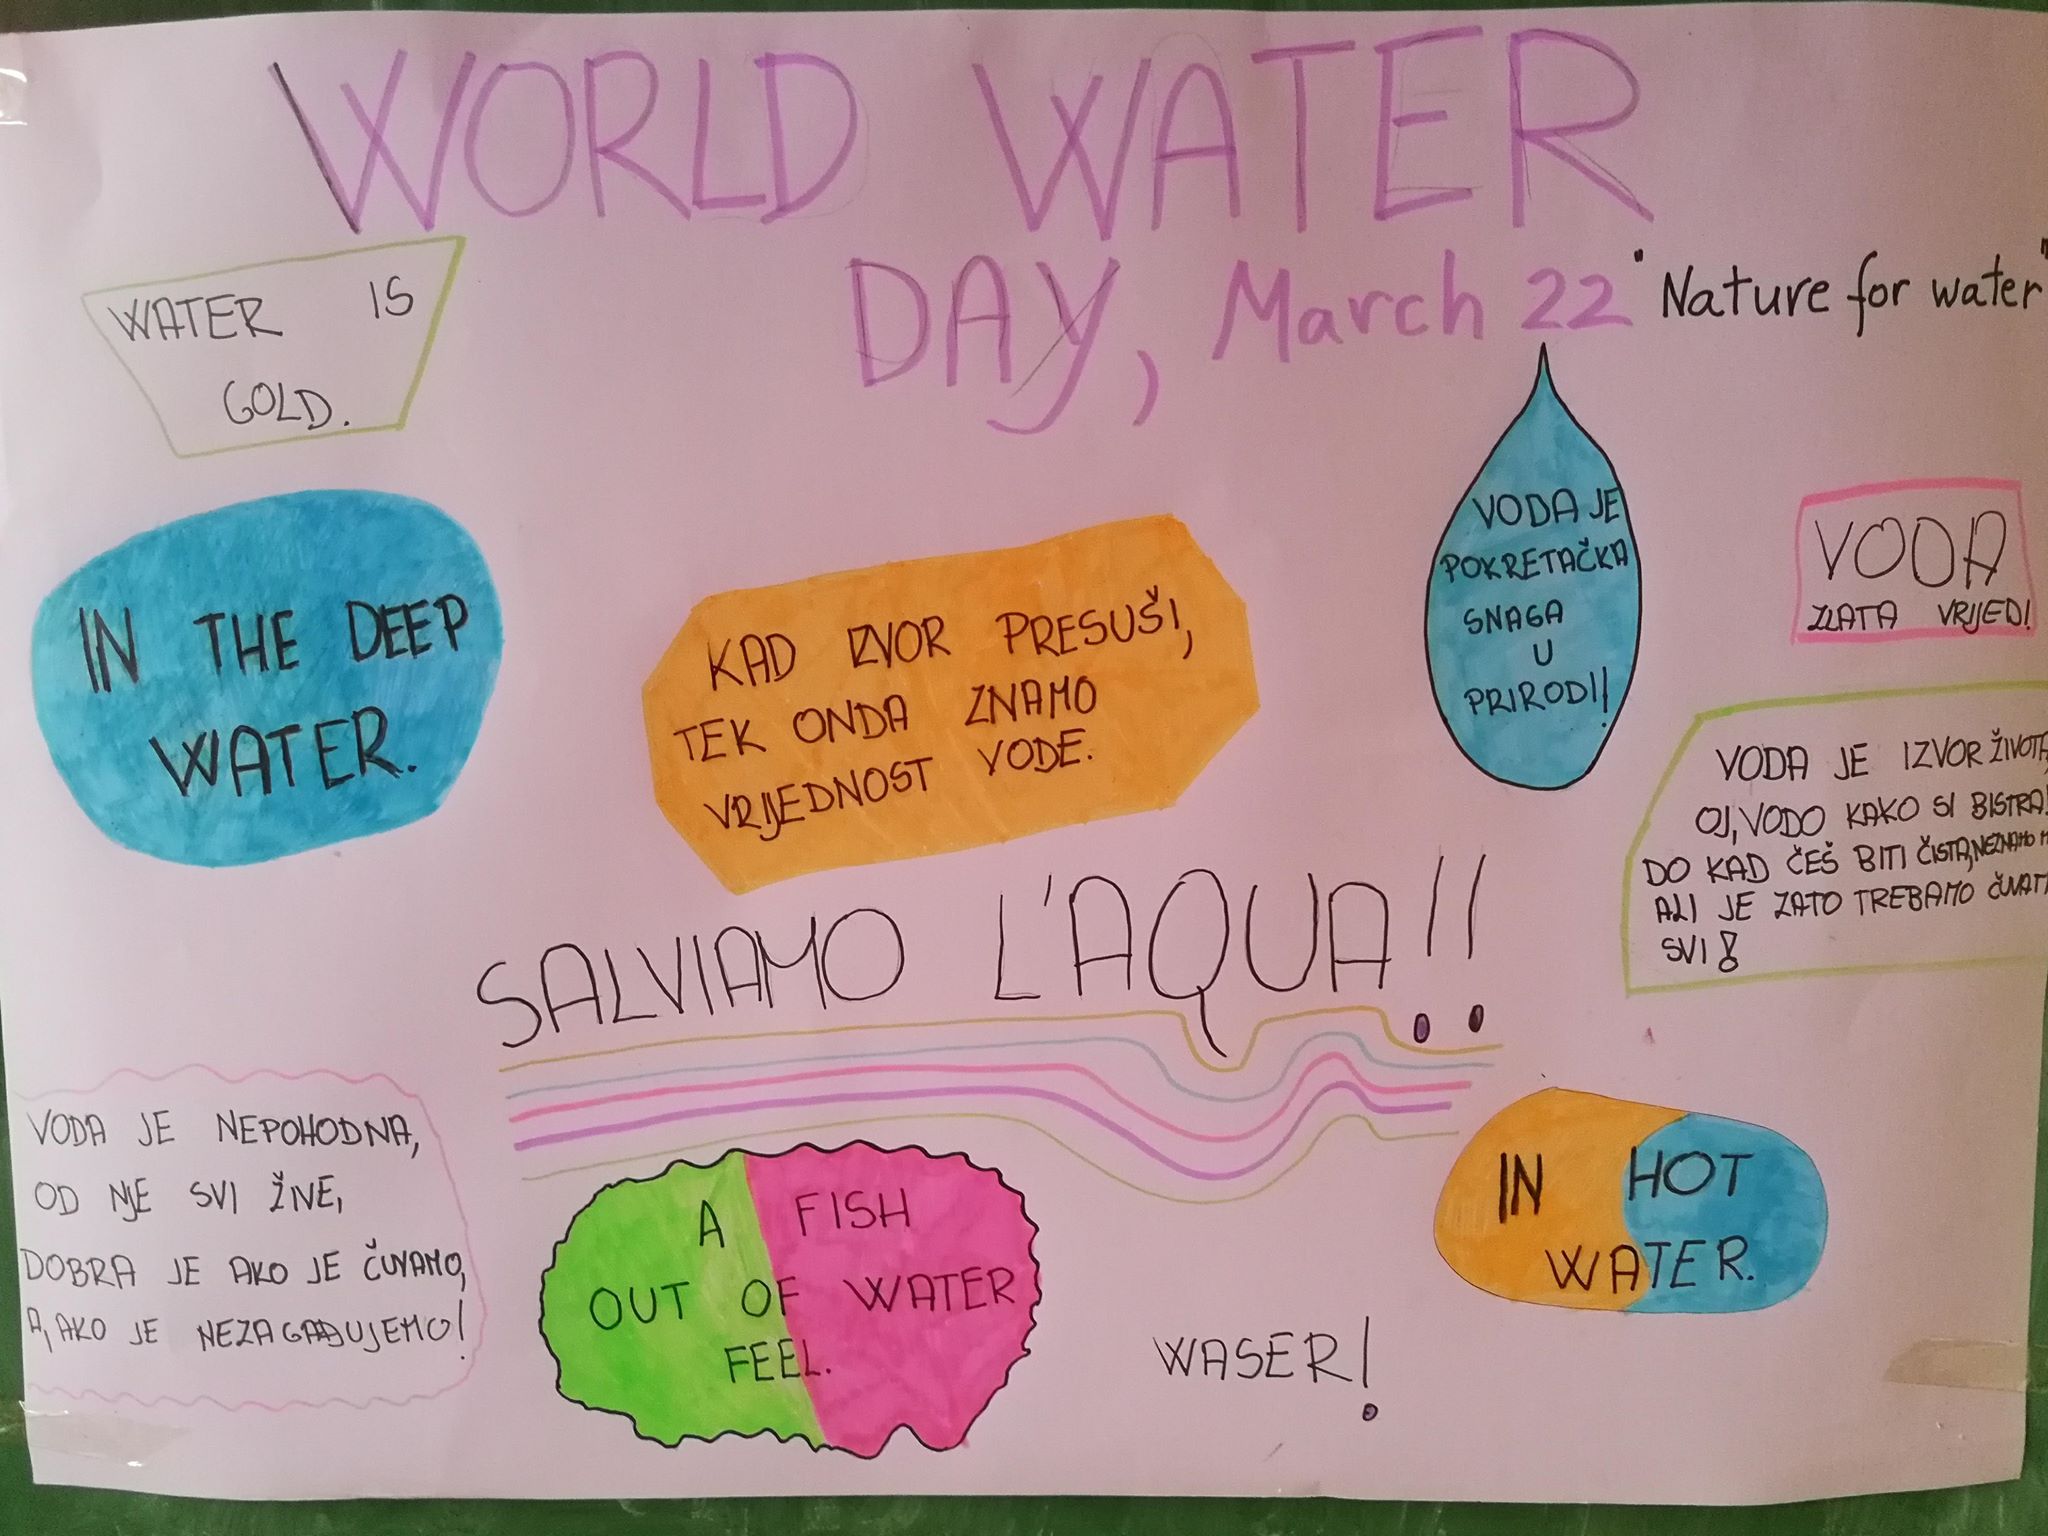 WORLD WATER
DAY, March 22 "Nature for water"
WATER IS
GOLD.
IN THE DEEP
WATER.
KAD IZVOR PRESUŠI,
TEK ONDA ZNAMO
VRIJEDNOST VODE.
VODA JE
POKRETAČKA
SNAGA
U
PRIRODI!
VODA
ZLATA VRIJEDI
VODA JE IZVOR ŽIVOTA,
OJ, VODO KAKO SI BISTRA!
DO KAD ĆEŠ BITI ČISTA, NEZNAMO
ALI JE ZATO TREBAMO ČUVATI
SVI!
SALVIAMO L'AQUA!!
VODA JE NEPOHODNA,
OD NJE SVI ŽIVE,
DOBRA JE AKO JE ČUVAMO,
A, AKO JE NEZAGAĐUJEMO!
A FISH
OUT OF WATER
FEEL.
IN HOT
WATER.
WASER!